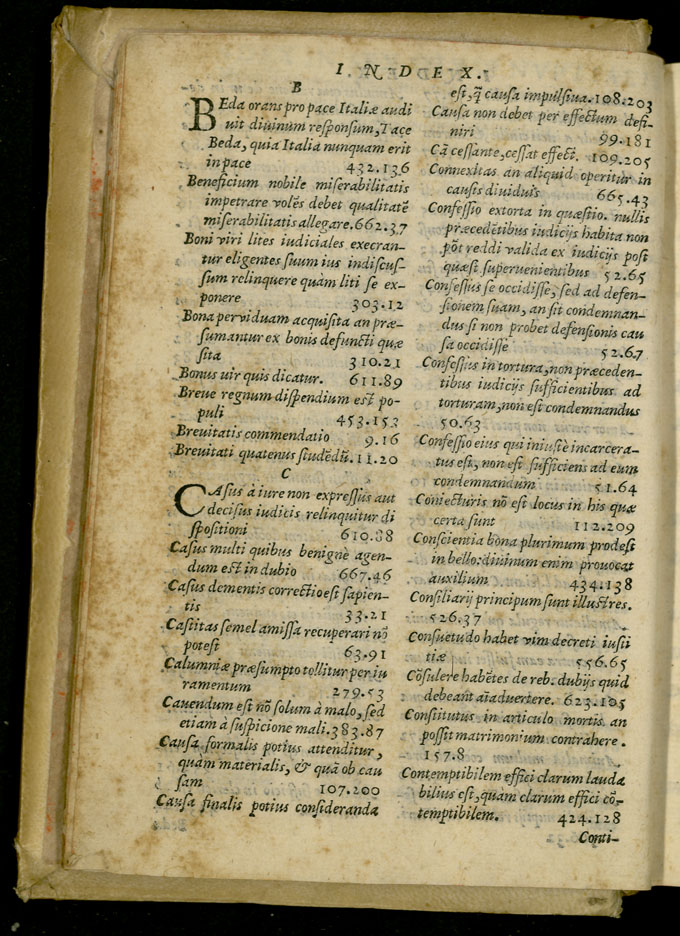 INDEX.
B
BEda orans pro pace Italiæ audi
uit diuinum responsum, Tace
Beda, quia Italia nunquam erit
in pace 432.136
Beneficium nobile miserabilitatis
impetrare volẽs debet qualitatẽ
miserabilitatis allegare. 662.37
Boni viri lites iudiciales execran-
tur eligentes suum ius indiscus-
sum relinquere quàm liti se ex-
ponere 303.12
Bona per viduam acquisita an præ-
sumantur ex bonis defuncti quæ
sita 310.21
Bonus uir quis dicatur. 611.89
Breue regnum dispendium est po-
puli 453.153
Breuitatis commendatio 9.16
Breuitati quatenus studẽdũ. 11.20
C
CAsus à iure non expressus aut
decisus iudicis relinquitur di
spositioni 610.88
Casus multi quibus benignè agen-
dum est in dubio 667.46
Casus dementis correctio est sapien-
tis 33.21
Castitas semel amissa recuperari nõ
potest 63.91
Calumniæ præsumpto tollitur per iu
ramentum 279.53
Cauendum est nõ solum à malo, sed
etiam à suspicione mali. 383.87
Causa formalis potius attenditur,
quàm materialis, & quã ob cau
sam 107.200
Causa finalis potius consideranda
est, q̃ causa impulsiua. 108.203
Causa non debet per effectum defi-
niri 99.181
Cã cessante, cessat effect. 109.205
Connexitas an aliquid operitur in
causis diuiduis 665.43
Confessio extorta in quæstio. nullis
præcedẽtibus iudicijs habita non
põt reddi valida ex iudicijs post
quæst superuenientibus 52.65
Confessus se occidisse, sed ad defen-
sionem suam, an sit condemnan-
dus si non probet defensionis cau
sa occidisse 52.67
Confessus in tortura, non præceden-
tibus iudicijs sufficientibus ad
torturam, non est condemnandus
50.63
Confessio eius qui iniustè incarcera-
tus est, non est sufficiens ad eum
condemnandum 51.64
Coniecturis nõ est locus in his quæ
certa sunt 112.209
Conscientia bona plurimum prodest
in bello: diuinum enim prouocat
auxilium 434.138
Consiliarij principum sunt illustres.
526.37
Consuetudo habet vim decreti iusti
tiæ 556.65
Cõsulere habẽtes de reb. dubijs quid
debeant aĩaduertere. 623.105
Constitutus in articulo mortis an
possit matrimonium contrahere.
157.8
Contemptibilem effici clarum lauda
bilius est, quàm clarum effici cõ-
temptibilem. 424.128
Conti-